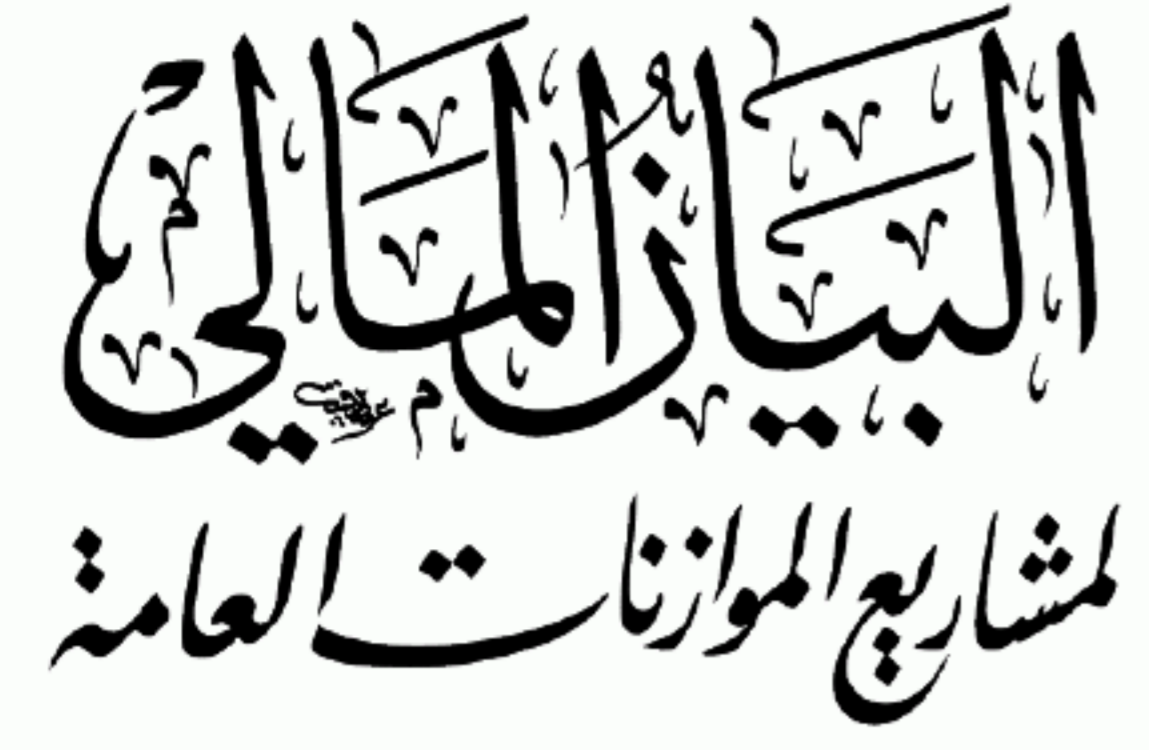 البيان المالي
لمشاريع الموازنات العامة